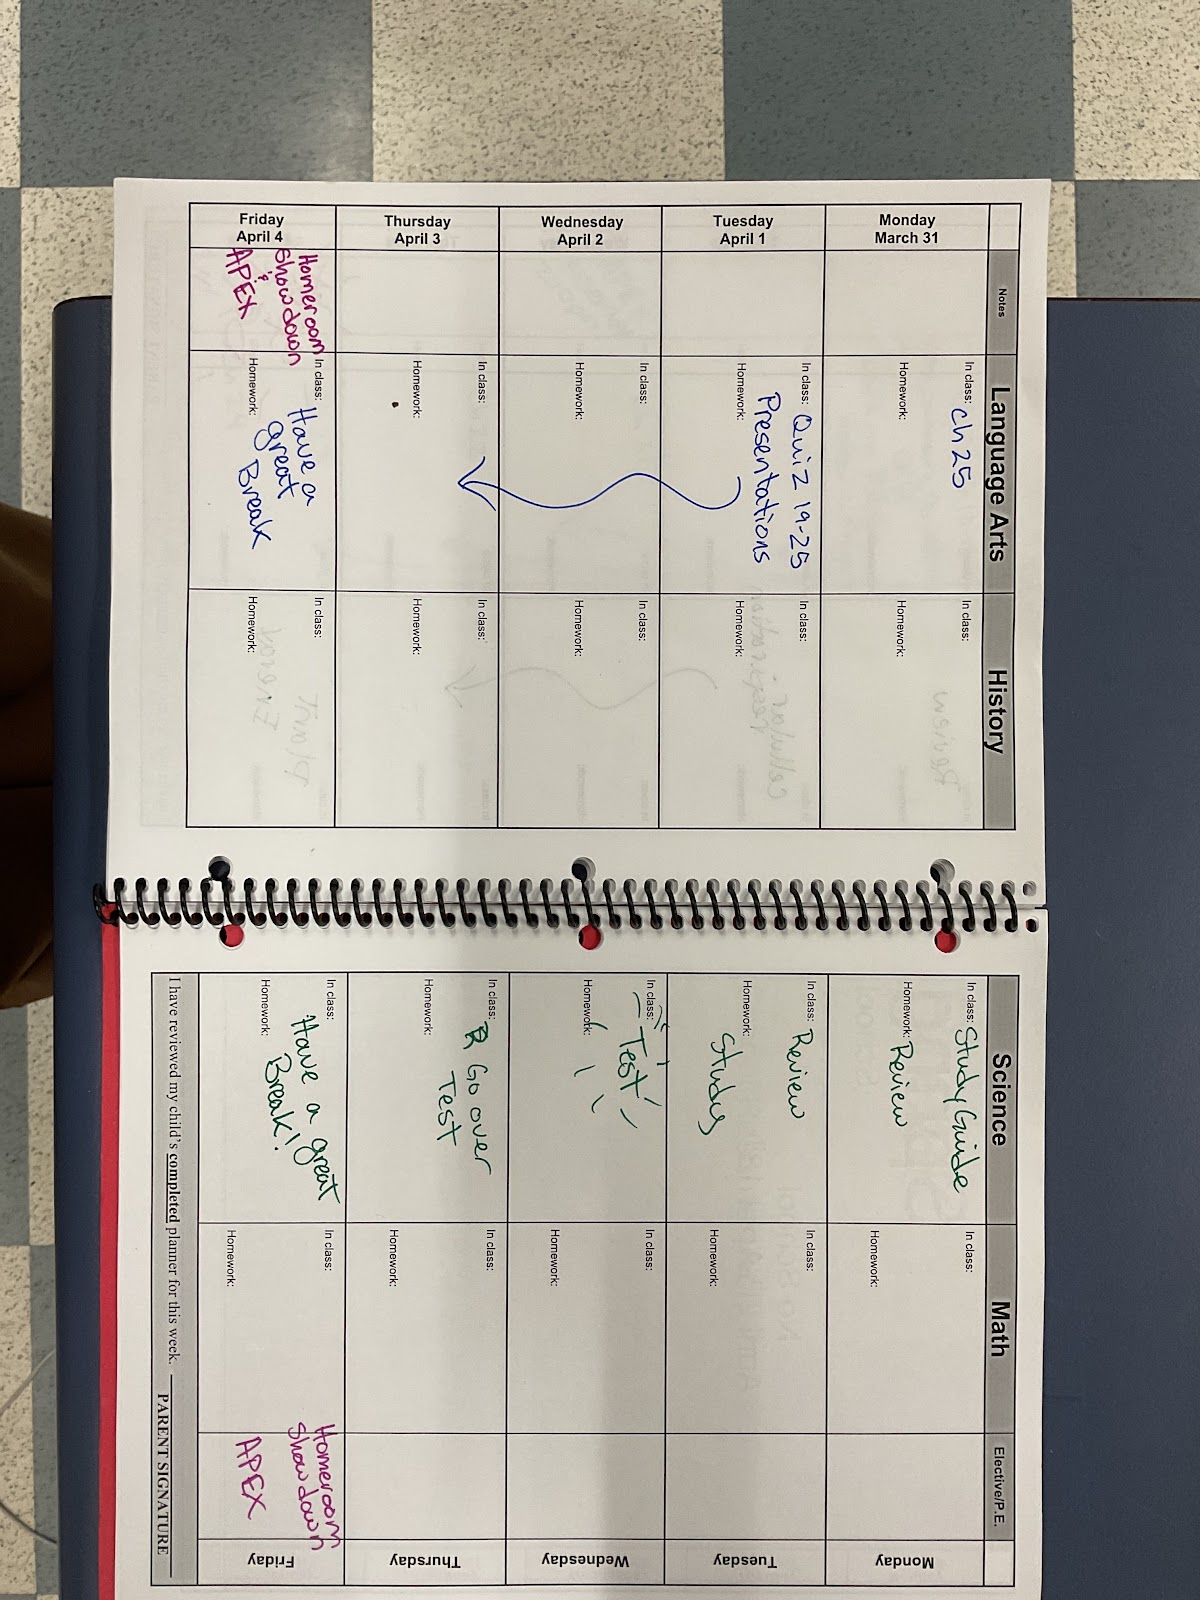 Notes
Language Arts
History
Monday
March 31
In class: Ch 25
Homework:
In class:
Homework:
Tuesday
April 1
In class: Quiz 19-25
Presentations
Homework:
In class:
Homework:
Wednesday
April 2
In class:
Homework:
In class:
Homework:
Thursday
April 3
In class:
Homework:
In class:
Homework:
Friday
April 4
Homeroom
Showdown
&
APEX
In class: Have a
great
Break
Homework:
In class:
Homework:
Science
Math
Elective/P.E.
In class: Study Guide
Homework: Review
In class:
Homework:
Monday
In class: Review
Homework: Study
In class:
Homework:
Tuesday
In class: Test
Homework:
In class:
Homework:
Wednesday
In class: Go over
Test
Homework:
In class:
Homework:
Thursday
In class: Have a great
Break!
Homework:
In class:
Homework:
Homeroom
Showdown
APEX
Friday
I have reviewed my child's completed planner for this week.
PARENT SIGNATURE